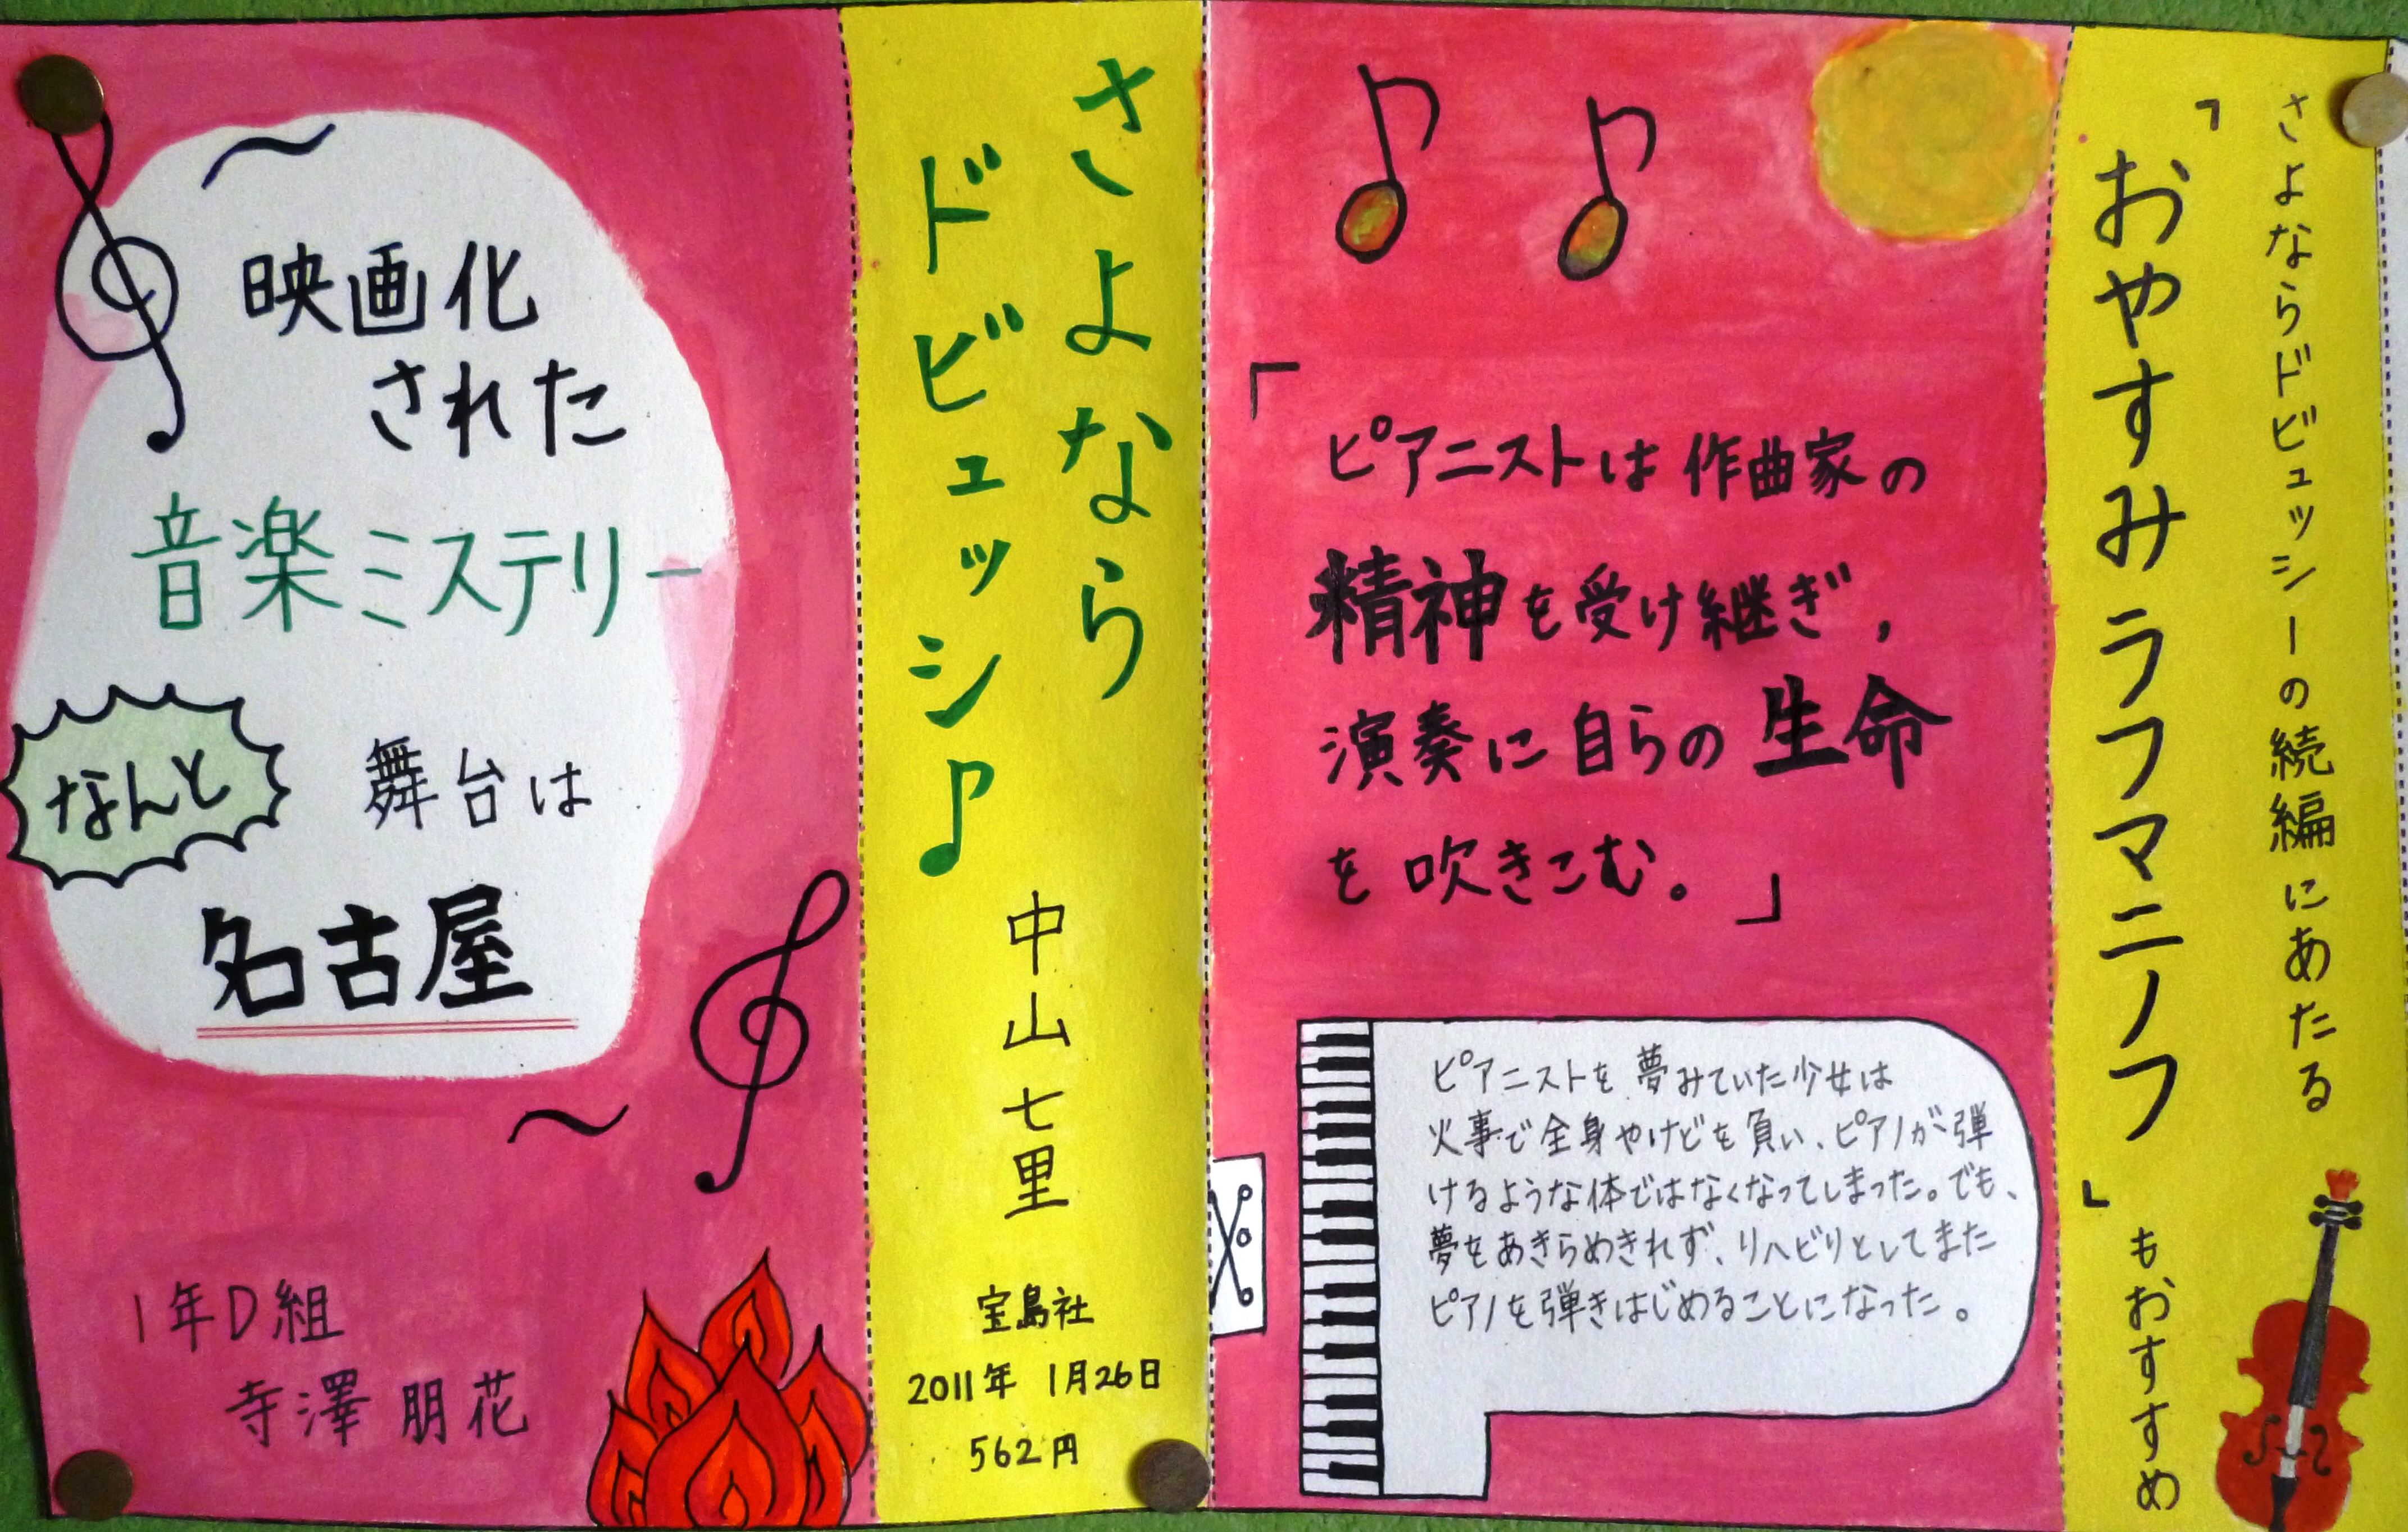 映画化
された
音楽ミステリー
なんと
舞台は
名古屋
1年D組
寺澤 朋花
さよなら
ドビュッシ♪
中山七里
宝島社
2011年 1月26日
562円
「ピアニストは作曲家の
精神を受け継ぎ,
演奏に自らの生命
を吹きこむ。」
ピアニストを夢みていた少女は
火事で全身やけどを負い、ピアノが弾
けるような体ではなくなってしまった。でも、
夢をあきらめきれず、リハビリとしてまた
ピアノを弾きはじめることになった。
さよならドビュッシーの続編にあたる
「おやすみラフマニノフ」もおすすめ